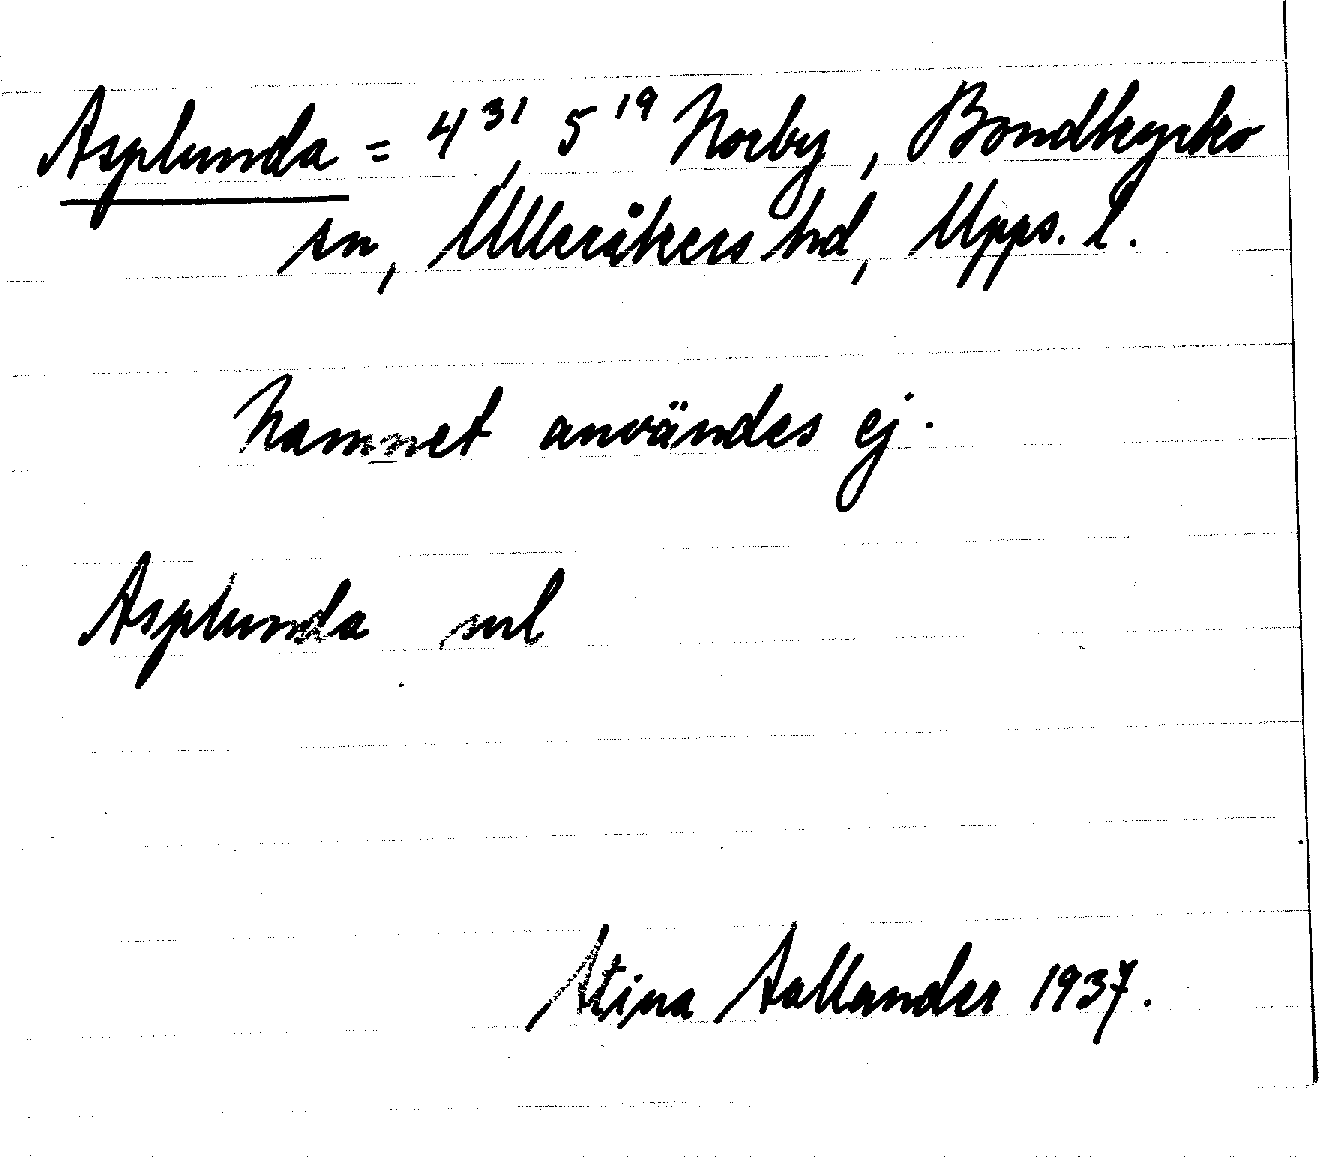 Asplunda = 4³¹, 5¹⁹ Norby, Bondkyrko
sn, Ulleråkers hd, Upps. l.
Namnet användes ej.
Asplunda url
Stina Sallander 1937.